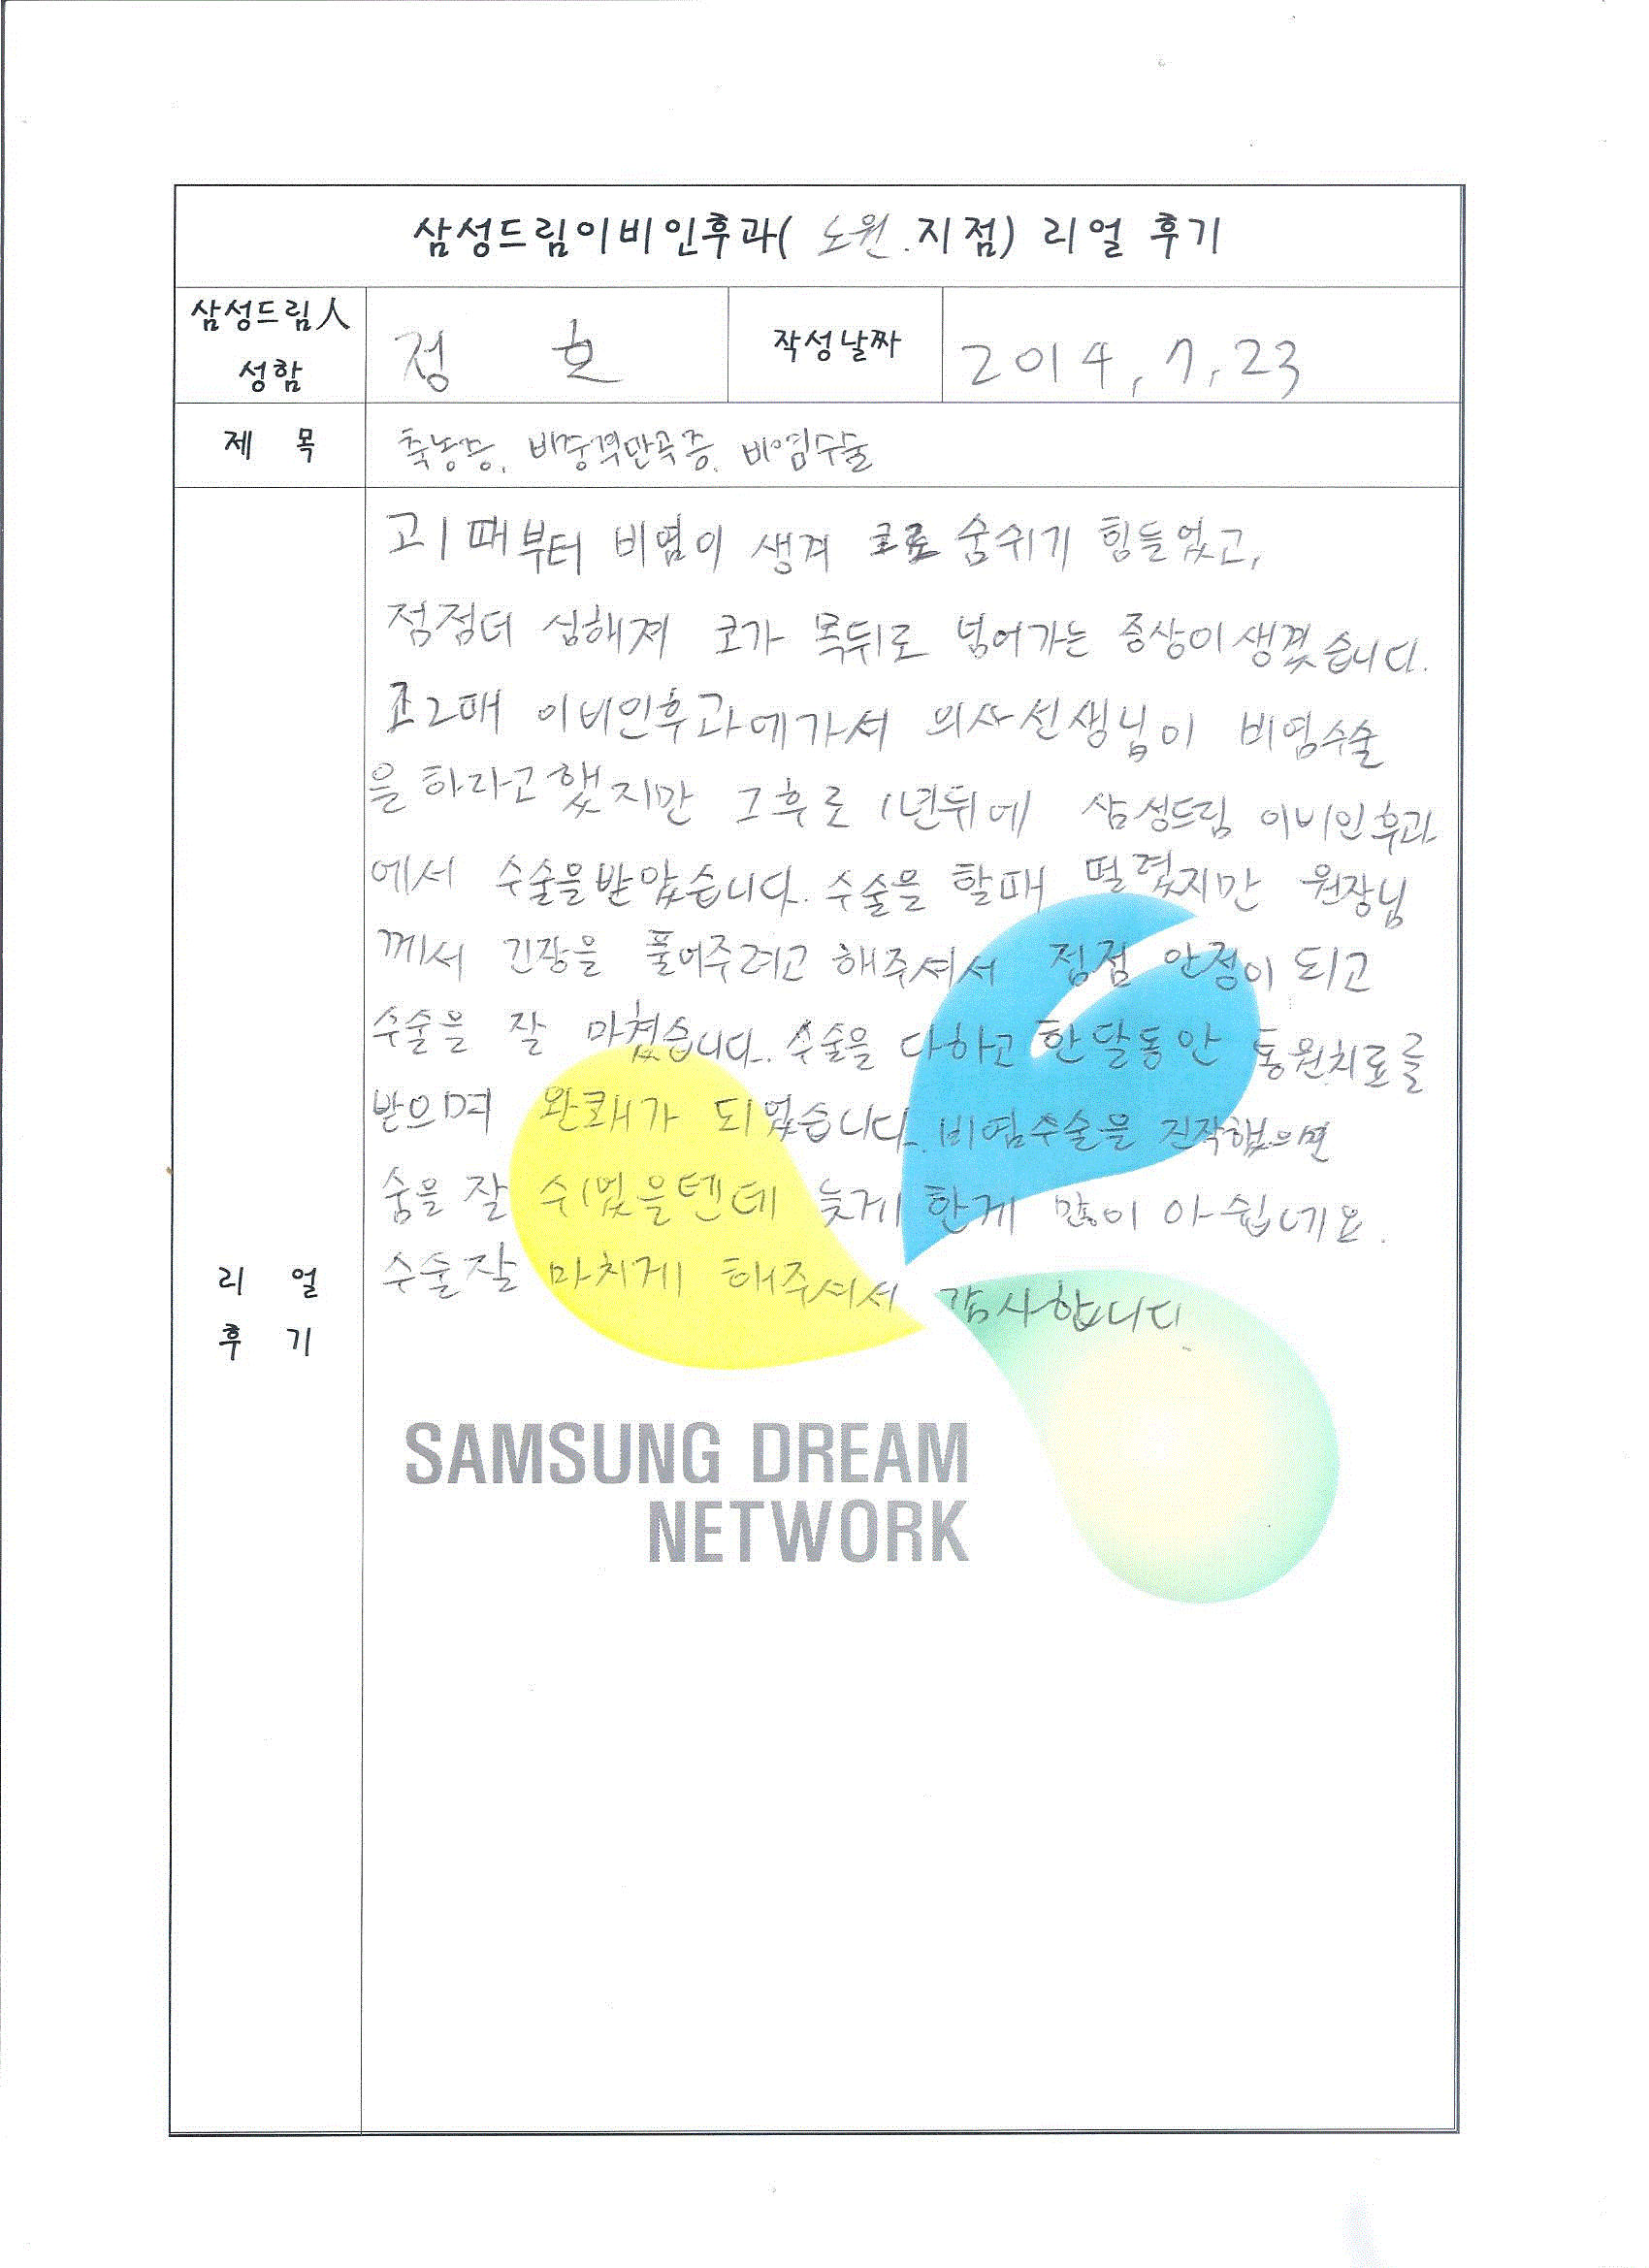 삼성드림이비인후과( 노원 지점) 리얼 후기
삼성드림人
성함
정 호
작성날짜
2014, 7, 23
제 목
축농증, 비중격만곡증, 비염수술
고1때부터 비염이 생겨 코로 숨쉬기 힘들었고,
점점더 심해져 코가 목뒤로 넘어가는 증상이 생겼습니다.
고2때 이비인후과에가서 의사선생님이 비염수술
을 하라고했지만 그후로 1년뒤에 삼성드림 이비인후과
에서 수술을받았습니다. 수술을 할때 떨렸지만 원장님
께서 긴장을 풀어주려고 해주셔서 점점 안정이 되고
수술을 잘 마쳤습니다. 수술을 다하고 한달동안 통원치료를
받으며 완쾌가 되었습니다. 비염수술을 진작했으면
숨을 잘 쉬었을텐데 늦게 한게 많이 아쉽네요.
수술잘 마치게 해주셔서 감사합니다
리 얼
후 기
SAMSUNG DREAM
NETWORK